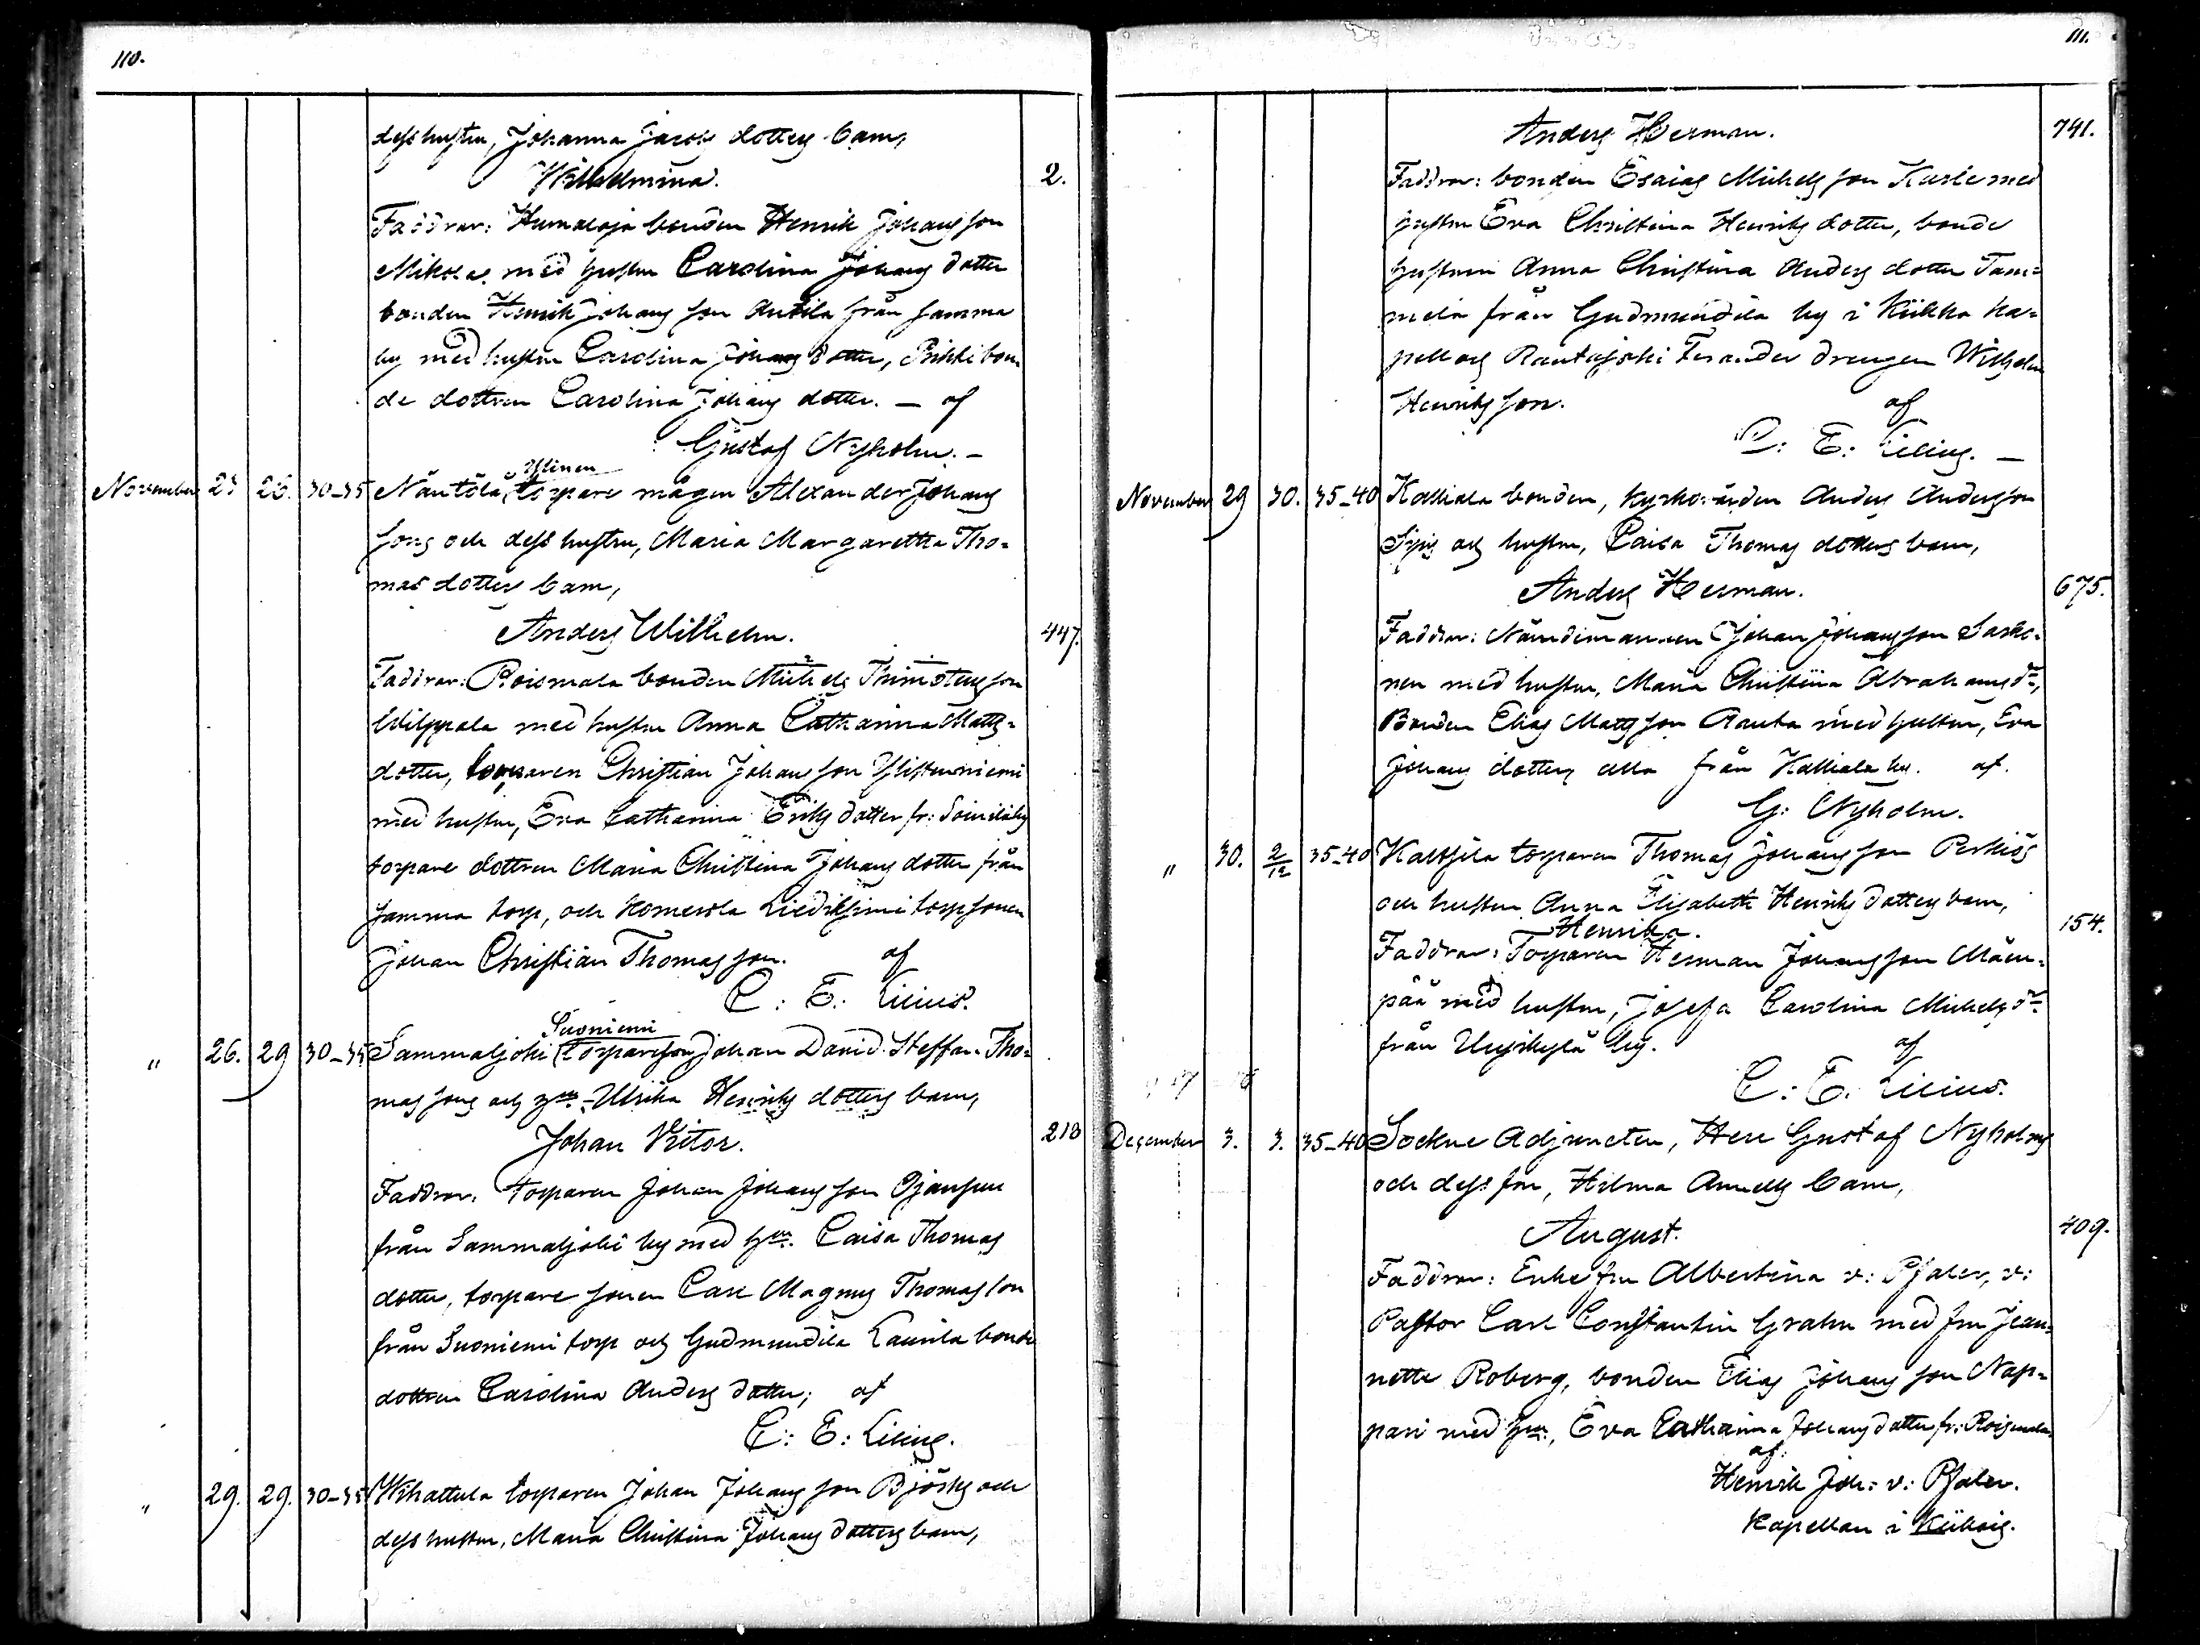 110.
dess hustru, Johanna Jacobs dotters barn,
Wilhelmina. 2.
Faddrar: Humaloja bonden Henrik Johansson
Mikola, med hustru Carolina Johans dotter
bonden Henrik Johans son Antila från samma
by med hustru Carolina Johans dotter, bon-
de dottren Carolina Johans dotter. — af
Gustaf Nyholm. —
Ylinen
November 23 26. 30-35 Näntölä torpare mågen Alexander Johans
sons och dess hustru, Maria Margaretha Tho-
mas dotters barn,
Anders Wilhelm. 447.
Faddrar: Roismala bonden Michels Thimoteus son
Wilppala med hustru Anna Catharina Matts-
dotter, torparen Christian Johans son Ylistenniemi
med hustru, Eva Catharina Eriks dotter fr: Soinila by
torpare dottren Maria Christina Johans dotter från
samma torp, och Komerola torpsonen
Johan Christian Thomas son. af
C: E: Lilius.
Suoniemi
" 26. 29 30-35 Sammaljoki torpareson Johan David Steffan Tho-
mas sons och hu Ulrika Henriks dotters barn,
Johan Victor. 218
Faddrar: torparen Johan Johans son Ojansuu
från Sammaljoki by med hu. Caisa Thomas
dotter, torpare sonen Carl Magnus Thomas son
från Suoniemi torp och Gudmundila Laurila bonde
dottren Carolina Anders dotter; af
C: E: Lilius.
" 29. 29. 30-35 Wihattula torparen Johan Johans son Björks och
dess hustru, Maria Christina Johans dotters barn,
111.
Anders Herman. 741.
Faddrar: bonden Esaias Michels son Karle med
hustru Eva Christina Henriks dotter, bonde
hustrun Anna Christina Anders dotter Tam-
mela från Gudmundila by i Kiikka ka-
pell och Rautajoki drengen Wilhelm
Henriks son. af
C: E: Lilius. —
November 29 30. 35-40 Kalliala bonden, kyrkovärden Anders Andersson
och hustru, Caisa Thomas dotters barn,
Anders Herman. 675.
Faddrar: Nämndemannen Johan Johansson Saske-
nen med hustru, Maria Christina Abrahams dr,
Bonden Elias Matts son Anula med hustru, Eva
Johans dotter, alla från Kalliala by. af.
G: Nyholm.
" 30. 2/12 35-40 Kaltsila torparen Thomas Johans son Perkiös
och hustru Anna Elisabeth Henriks dotters barn,
Henrika. 154.
Faddrar: Torparen Herman Johans son Mäen-
pää med hustru, Josefa Carolina Michels dr
från by. af
C: E: Lilius.
December 3. 3. 35-40 Sockne Adjuncten, Herr Gustaf Nyholms
och dess fru, Hilma Amelys barn,
August. 409.
Faddrar: Enkefru Albertina v: Pfaler, v:
Pastor Carl Constantin Grahn med fru Jean-
nette Roberg, bonden Elias Johans son Nap-
pari med hu., Eva Catharina Johans dotter fr: Roismala
af
Henrik Joh: v: Pfaler.
Kapellan i Kiikois.